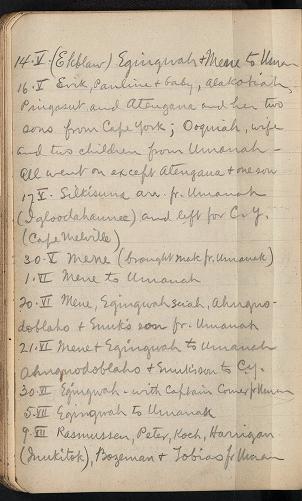 14. V. (Ekblaw) Egingwah & Mene to Uman
16. V Erik, Pauline & baby, Alakatiah,
Pingasut, and Atengana and her two
sons from Cape York; Ooquiah, wife
and two children from Umanah -
All went on except Atengana & one son
17 V. Silkisuna arr. fr. Umanah
(Igloodahaunee) and left for C. Y.
(Cape Melville)
30. V Mene (brought mak fr. Umanak)
1. VI Mene to Umanah
20. VI Mene, Egingwah sick, Ahngno-
doblaho & Enuk's son fr. Umanah
21. VI Mene & Egingwah to Umanah
Ahngnodoblaho & Enukson to C.Y.
30. VI Egingwah - with Captain Comer fr Uman
5. VII Egingwah to Umanak
9. VII Rasmussen, Peter, Koch, Harrigan
(Inukitok), Bozeman & Tobias fr Uman